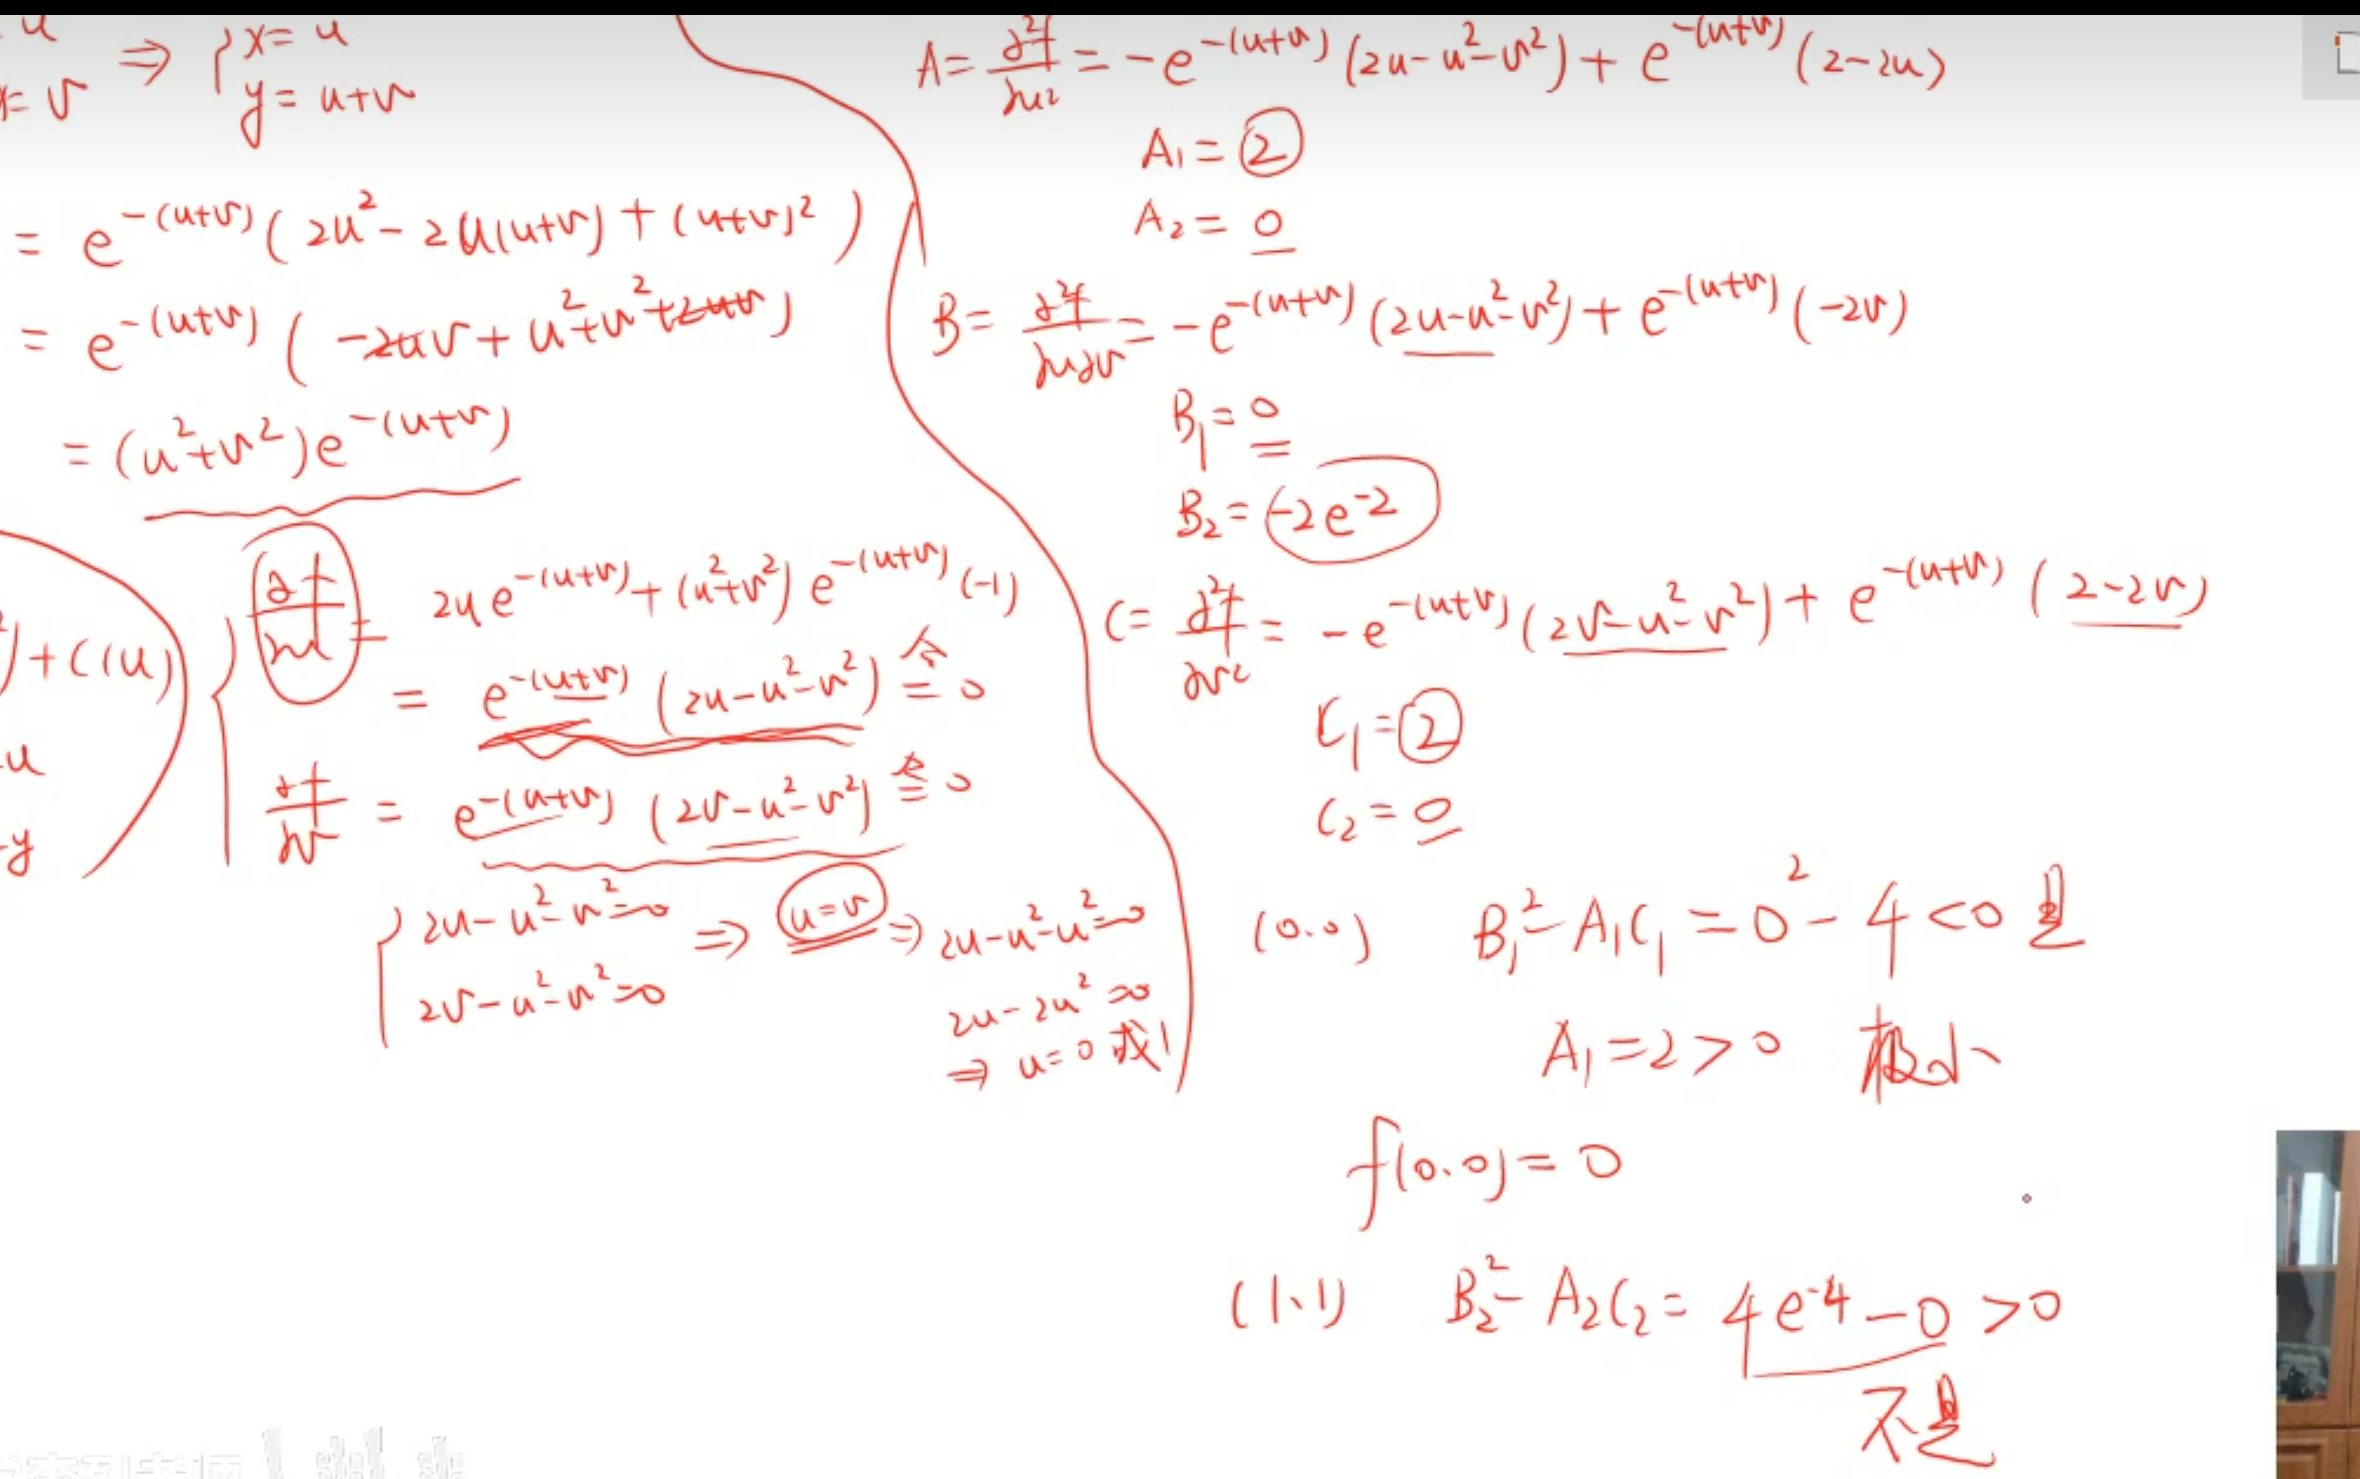 u ⇒ { x = u
x = v y = u+v
= e^{-(u+v)} ( 2u² - 2u(u+v) + (u+v)² )
= e^{-(u+v)} ( -2uv + u² + v² + 2uv )
= (u²+v²) e^{-(u+v)}
) + C(u)
-u
-y
∂f/∂u = 2u e^{-(u+v)} + (u²+v²) e^{-(u+v)} (-1)
= e^{-(u+v)} (2u - u² - v²) 令= 0
∂f/∂v = e^{-(u+v)} (2v - u² - v²) 令= 0
{ 2u - u² - v² = 0 ⇒ u=v ⇒ 2u - u² - u² = 0
2v - u² - v² = 0
2u - 2u² = 0
⇒ u = 0 或 1
A = ∂²f/∂u² = -e^{-(u+v)} (2u - u² - v²) + e^{-(u+v)} (2-2u)
A₁ = 2
A₂ = 0
B = ∂²f/∂u∂v = -e^{-(u+v)} (2u - u² - v²) + e^{-(u+v)} (-2v)
B₁ = 0
B₂ = -2e^{-2}
C = ∂²f/∂v² = -e^{-(u+v)} (2v - u² - v²) + e^{-(u+v)} (2-2v)
C₁ = 2
C₂ = 0
(0.0) B₁² - A₁C₁ = 0² - 4 < 0 是
A₁ = 2 > 0 极小
f(0.0) = 0
(1、1) B₂² - A₂C₂ = 4e^{-4} - 0 > 0
不是